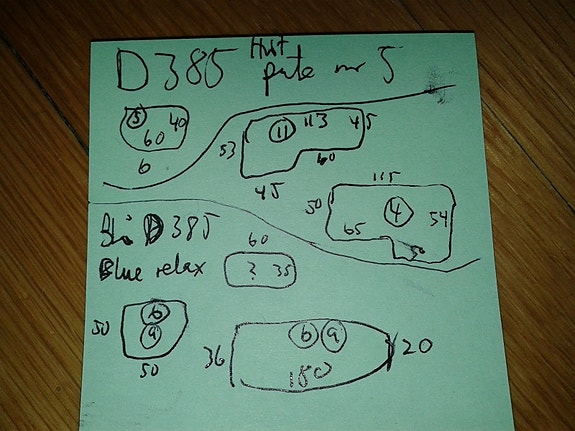 D385 Hvit
pute nr 5
5 60 40
6
11 113 45
53 60
45
115
50 4 54
65 50
Blå D385
Blue relax
60
? 35
6
9
50
50
6 9
36 180 20